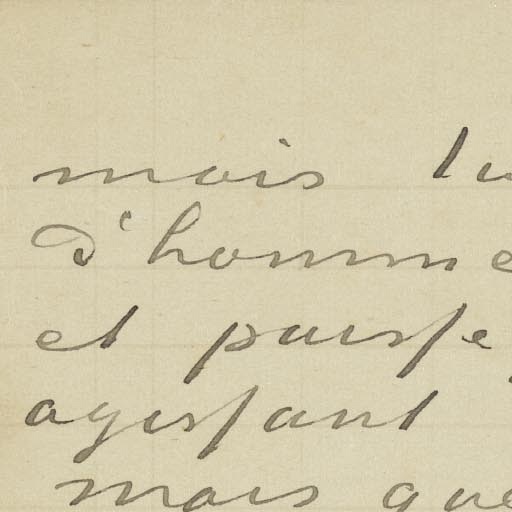 mais
d'homme
et puisse
agissant
mais que